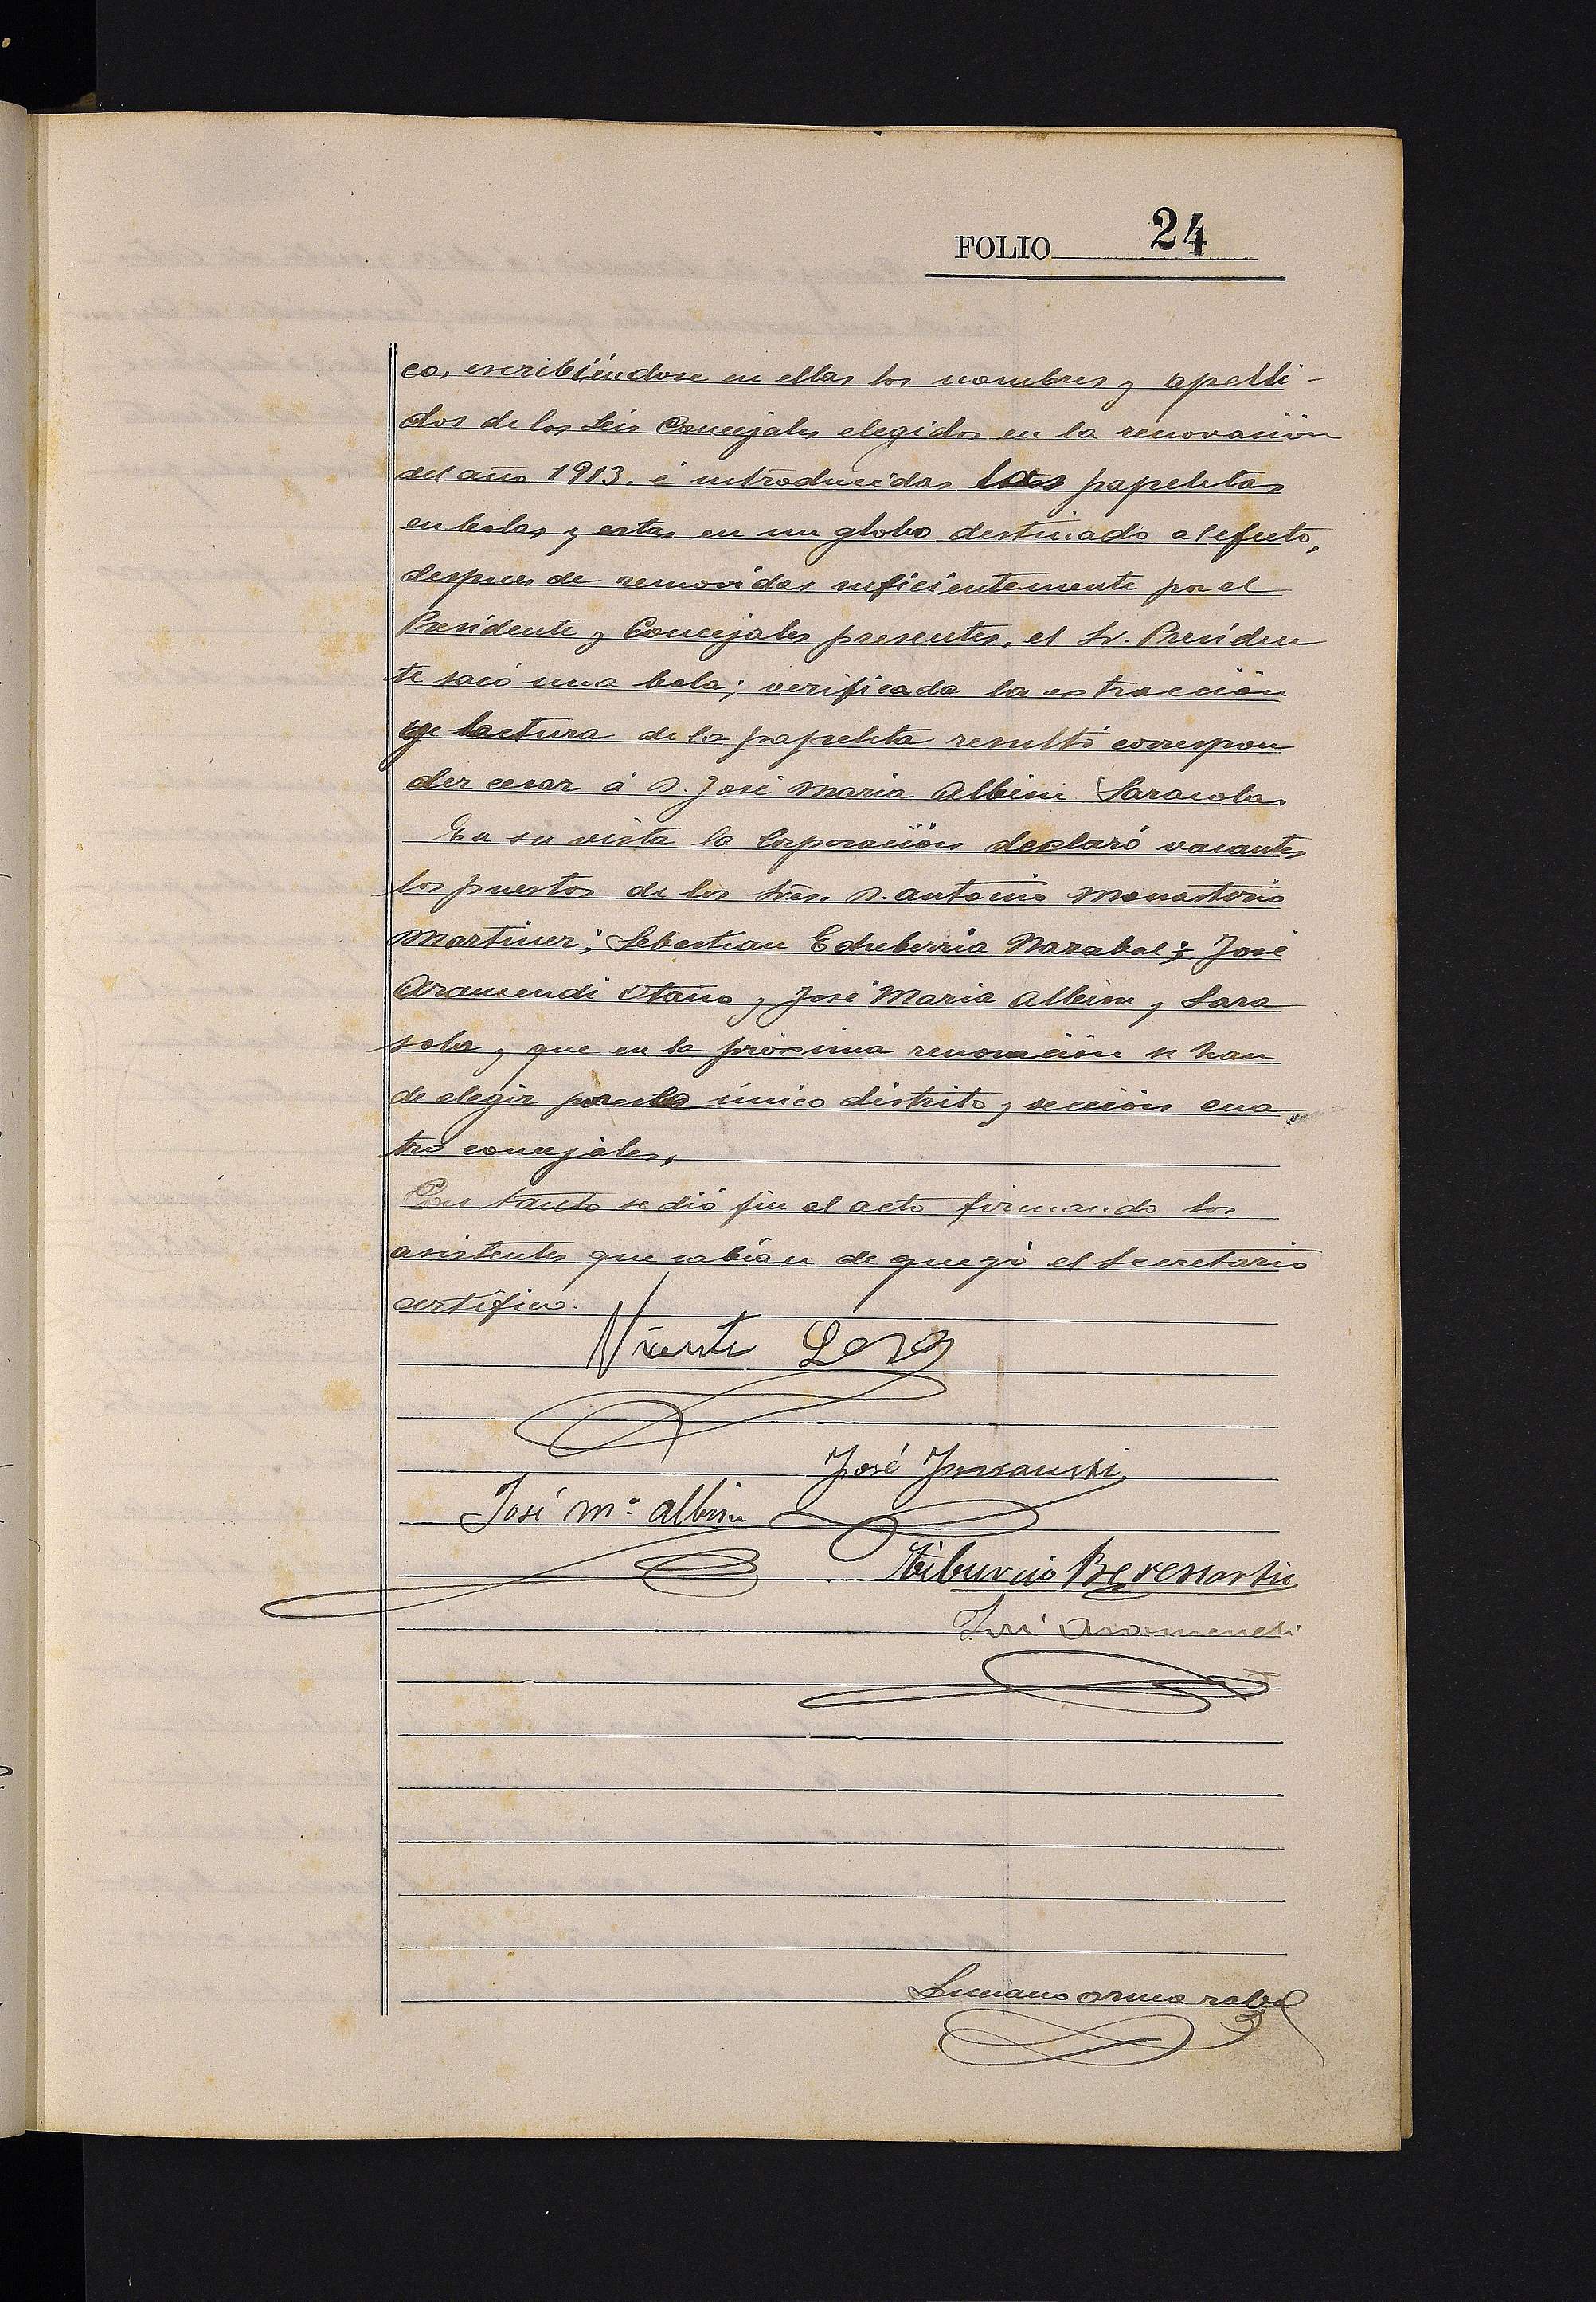 FOLIO 24
co, escribiéndose en ellas los nombres y apelli-
dos de los Seis Concejales elegidos en la renovación
del año 1913. é introducidas las papeletas
en bolas y estas en un globo destinado al efecto,
despues de removidas suficientemente por el
Presidente y Concejales presentes, el Sr. Presiden
te sacó una bola; verificada la extracción
y lectura de la papeleta resultó correspon
der cesar á D. José Maria Albisu Sarasola
En su vista la Corporación declaró vacantes
los puestos de los Sres. D. Antonio Monasterio
Martinez; Sebastian Echeberria Narabal; José
Aramendi Otaño y José Maria Albisu y Sara
sola y que en la próxima renovación se han
de elegir por este único distrito y sección cua
tro concejales,
Con tanto se dió fin al acto firmando los
asistentes que sabian de que yó el Secretario
certifico.
Vicente
José
José Mª Albisu
Tiburcio
José Aramendi
Luciano